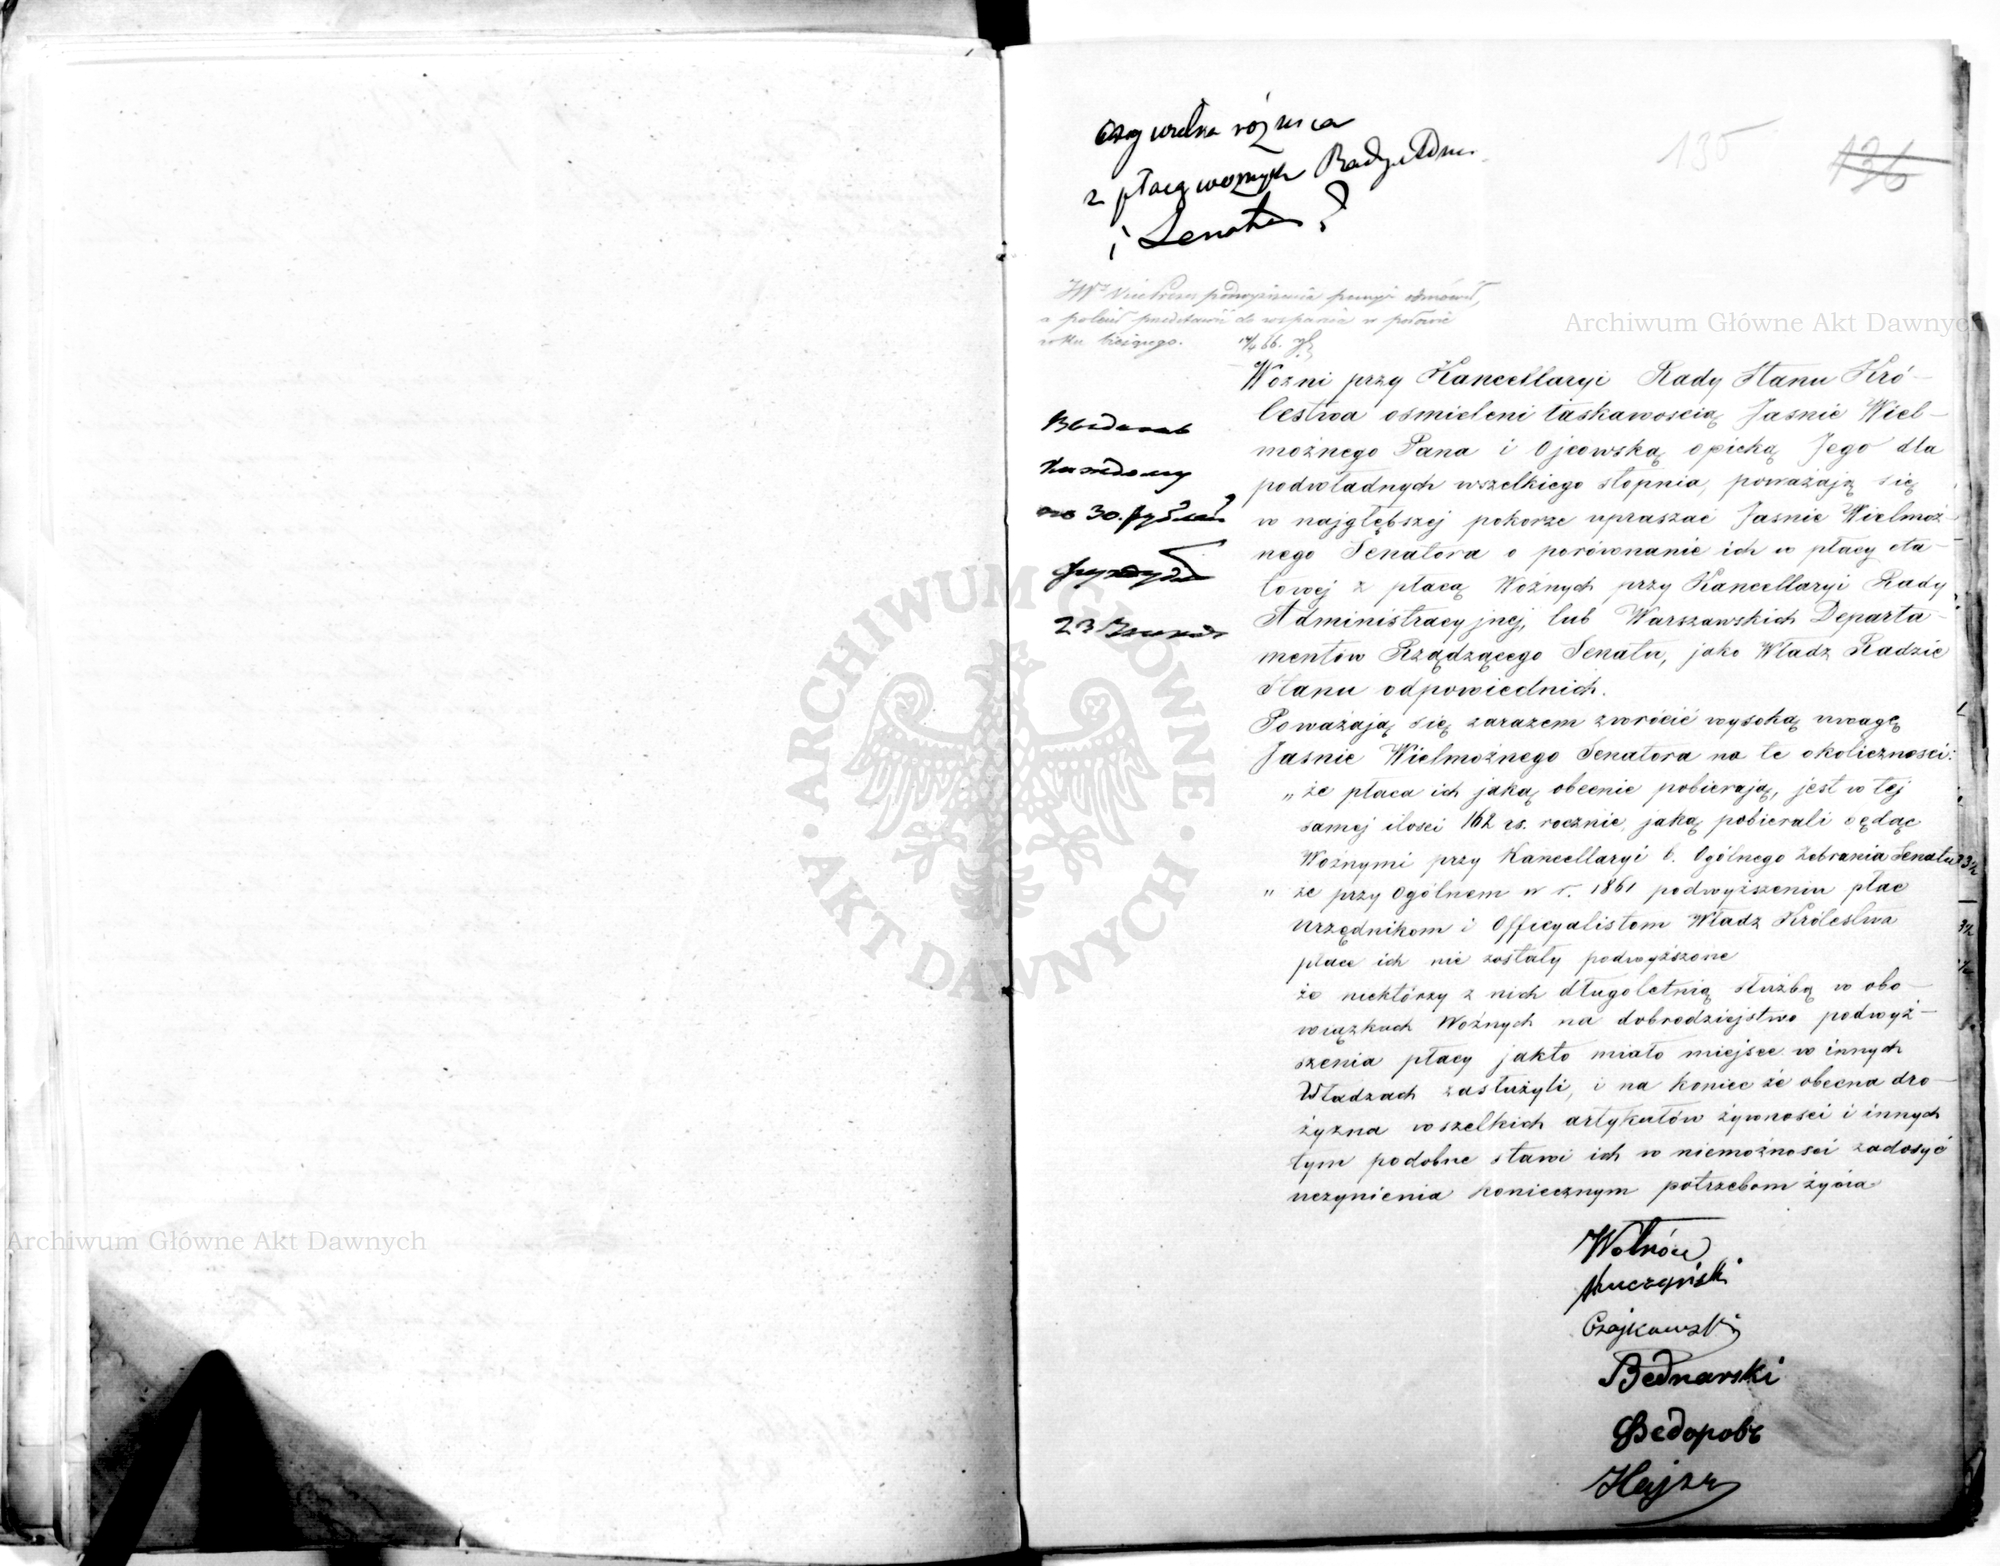 Czy wielka różnica
z płacą woźnych Rady Adm.
i Senatu?
135
136
podwyższenia pensyi odmówił,
a polecił przedstawić do wsparcia w połowie
roku bieżącego.
Woźni przy Kancellaryi Rady Stanu Kró-
lestwa ośmieleni łaskawością Jaśnie Wiel-
możnego Pana i Ojcowską opieką Jego dla
podwładnych wszelkiego stopnia, poważają się
w najgłębszej pokorze upraszać Jaśnie Wielmoż-
nego Senatora o porównanie ich w płacy eta-
towej z płacą Woźnych przy Kancellaryi Rady
Administracyjnej, lub Warszawskich Departa-
mentów Rządzącego Senatu, jako Władz Radzie
Stanu odpowiednich.
Poważają się zarazem zwrócić wysoką uwagę
Jaśnie Wielmożnego Senatora na te okoliczności:
„ że płaca ich jaką obecnie pobierają, jest w tej
samej ilości 162 rs. rocznie, jaką pobierali będąc
Woźnymi przy Kancellaryi b. Ogólnego Zebrania Senatu
„ że przy Ogólnem w r. 1861 podwyższeniu płac
Urzędnikom i Officyalistom Władz Królestwa
płace ich nie zostały podwyższone
że niektórzy z nich długoletnią służbą w obo-
wiązkach Woźnych na dobrodziejstwo podwyż-
szenia płacy jakto miało miejsce w innych
Władzach zasłużyli, i na koniec że obecna dro-
żyzna wszelkich artykułów żywności i innych
tym podobne stawi ich w niemożności zadosyć
uczynienia koniecznym potrzebom życia
Kuczyński
Czajkowski
Bednarski
Ѳедоровъ
Hajzer
по 30. рублей
23
Archiwum Główne Akt Dawnych
Archiwum Główne Akt Dawnych
ARCHIWUM GŁÓWNE
AKT DAWNYCH